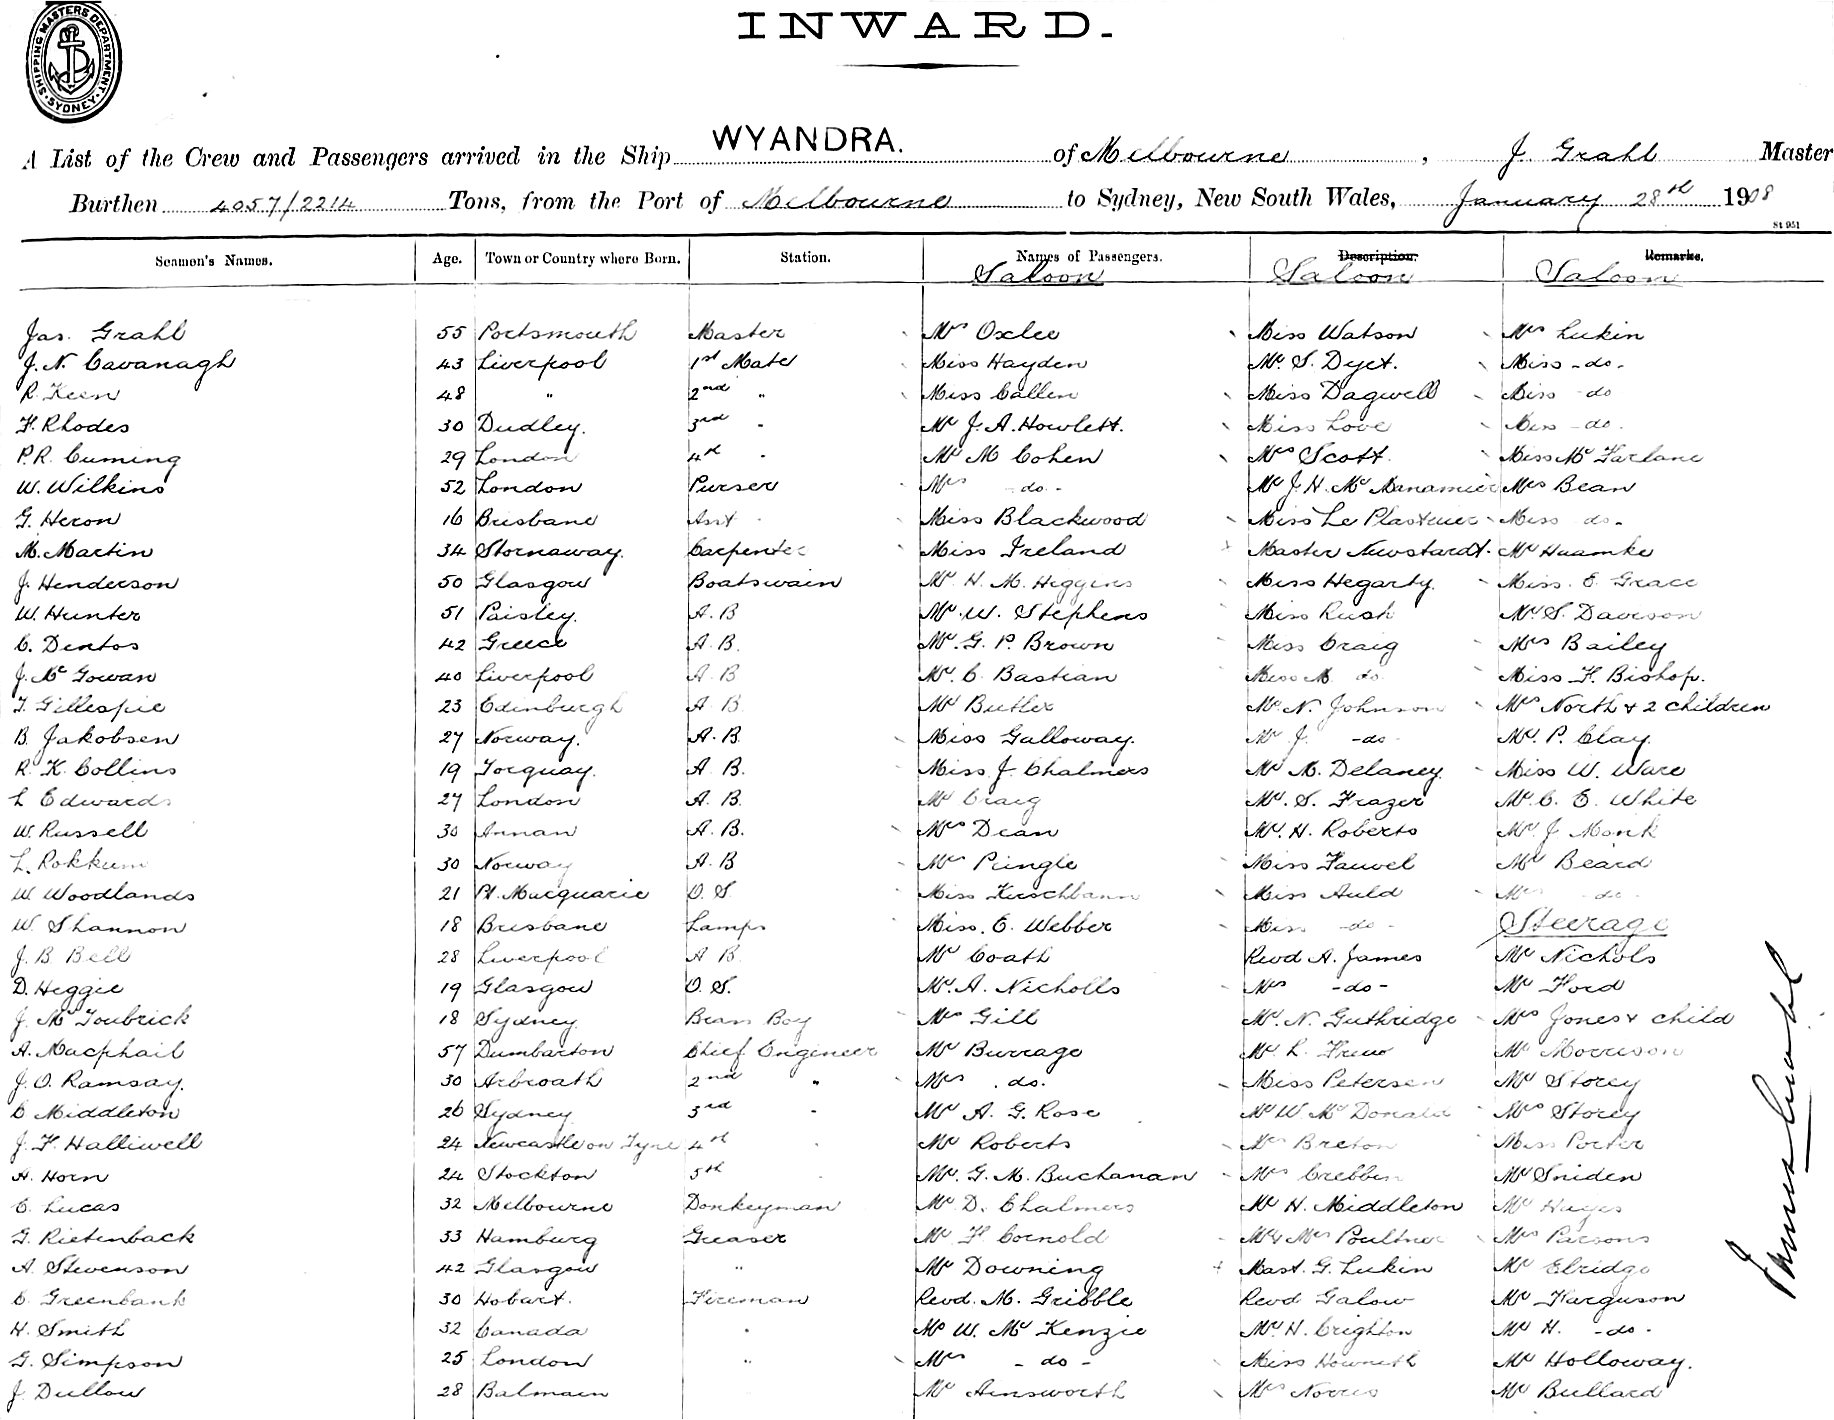 SHIPPING MASTERS DEPARTMENT. SYDNEY
INWARD.
A List of the Crew and Passengers arrived in the Ship WYANDRA. of Melbourne, J. Grahl Master
Burthen 4057/2214 Tons, from the Port of Melbourne to Sydney, New South Wales, January 28th 1908
St 951
Seamen's Names. Age. Town or Country where Born. Station. Names of Passengers. Description. Remarks.
Saloon Saloon Saloon
Jas. Grahl 55 Portsmouth Master Mrs Oxlee Miss Watson Mrs Lukin
J. N. Cavanagh 43 Liverpool 1st Mate Miss Hayden Mr. S. Dyet. Miss -do-
R. Keen 48 " 2nd " Miss Callen Miss Dagwell Miss do
F. Rhodes 30 Dudley. 3rd " Mr J. A. Howlett. Miss Love Miss -do.
P.R. Cuming 29 London 4th " Mr M Cohen Mrs Scott. Miss Mc Farlane
W. Wilkins 52 London Purser Mrs -do- Mr J. H. Mc Manamier Mrs Bean
G. Heron 16 Brisbane Asst " Miss Blackwood Miss Le Plastrier Miss do-
M. Martin 34 Stornaway. Carpenter Miss Ireland Master Newstardt. Mr Huamke
J. Henderson 50 Glasgow Boatswain Mr. H. M. Higgins Miss Hegarty. Miss. E. Grace
W. Hunter 51 Paisley. A. B Mr. W. Stephens Miss Rush Mr. S. Davison
C. Dentos 42 Greece A. B. Mr. G. P. Brown Miss Craig Mrs Bailey
J. Mc Gowan 40 Liverpool A. B Mr. C. Bastian Miss M. do Miss F. Bishop.
T. Gillespie 23 Edinburgh A. B. Mr Butler Mr. N. Johnson Mrs North & 2 children
B. Jakobsen 27 Norway. A. B. Miss Galloway. Mr J. -do- Mr. P. Clay.
R. K. Collins 19 Torquay. A. B. Miss J. Chalmers Mr M. Delaney. Miss W. Ware
L Edwards 27 London A. B. Mr Craig Mr. S. Frazer Mr. C. E. White
W. Russell 30 Annan A. B. Mrs Dean Mr. H. Roberts Mr. J. Monk
L. Rokkum 30 Norway A. B Mrs Pringle Miss Fauvel Mr Beard
W. Woodlands 21 Pt. Macquarie O. S. Miss Kirschbann Miss Auld Mrs do-
W. Shannon 18 Brisbane Lamps Miss. E. Webber Miss -do- Steerage
J. B Bell 28 Liverpool A B. Mr Coath Revd A. James Mr Nichols
D. Heggie 19 Glasgow O. S. Mr. A. Nicholls Mrs -do- Mr Ford
J. Mc Goubrick 18 Sydney Boy Mrs Gill Mr. N. Guthridge Mrs Jones & child
A. Macphail 57 Dumbarton Chief Engineer Mr Burrage Mr L. Frew Mr Morrison
J. O. Ramsay. 30 Arbroath 2nd " Mrs . do. Miss Petersen Mr Storey
C Middleton 26 Sydney 3rd " Mr A. G. Rose Mr W Mc Donald Mrs Storey
J. F. Halliwell 24 Newcastle on Tyne 4th " Mr Roberts Mrs Breton Miss Porter
A. Horn 24 Stockton 5th " Mr. G. M. Buchanan Mrs Crebbin Mr Sniden
C. Lucas 32 Melbourne Donkeyman Mr D. Chalmers Mr H. Middleton Mr Hayes
G. Rietenback 33 Hamburg Greaser Mr F Cornold Mr & Mrs Poultner Mrs Parsons
A. Stevenson 42 Glasgow " Mr Downing Mast. G. Lukin Mr Elridge
C. Greenbank 30 Hobart. Fireman Revd. M. Gribble Revd Galow Mr Farguson
H. Smith 32 Canada " Mr W. Mc Kenzie Mr. H. Crighton Mr H. -do-
G. Simpson 25 London " Mrs - do - Miss Howneth Mr Holloway.
J. Dullow 28 Balmain Mr Ainsworth Mrs Norris Mr Bullard